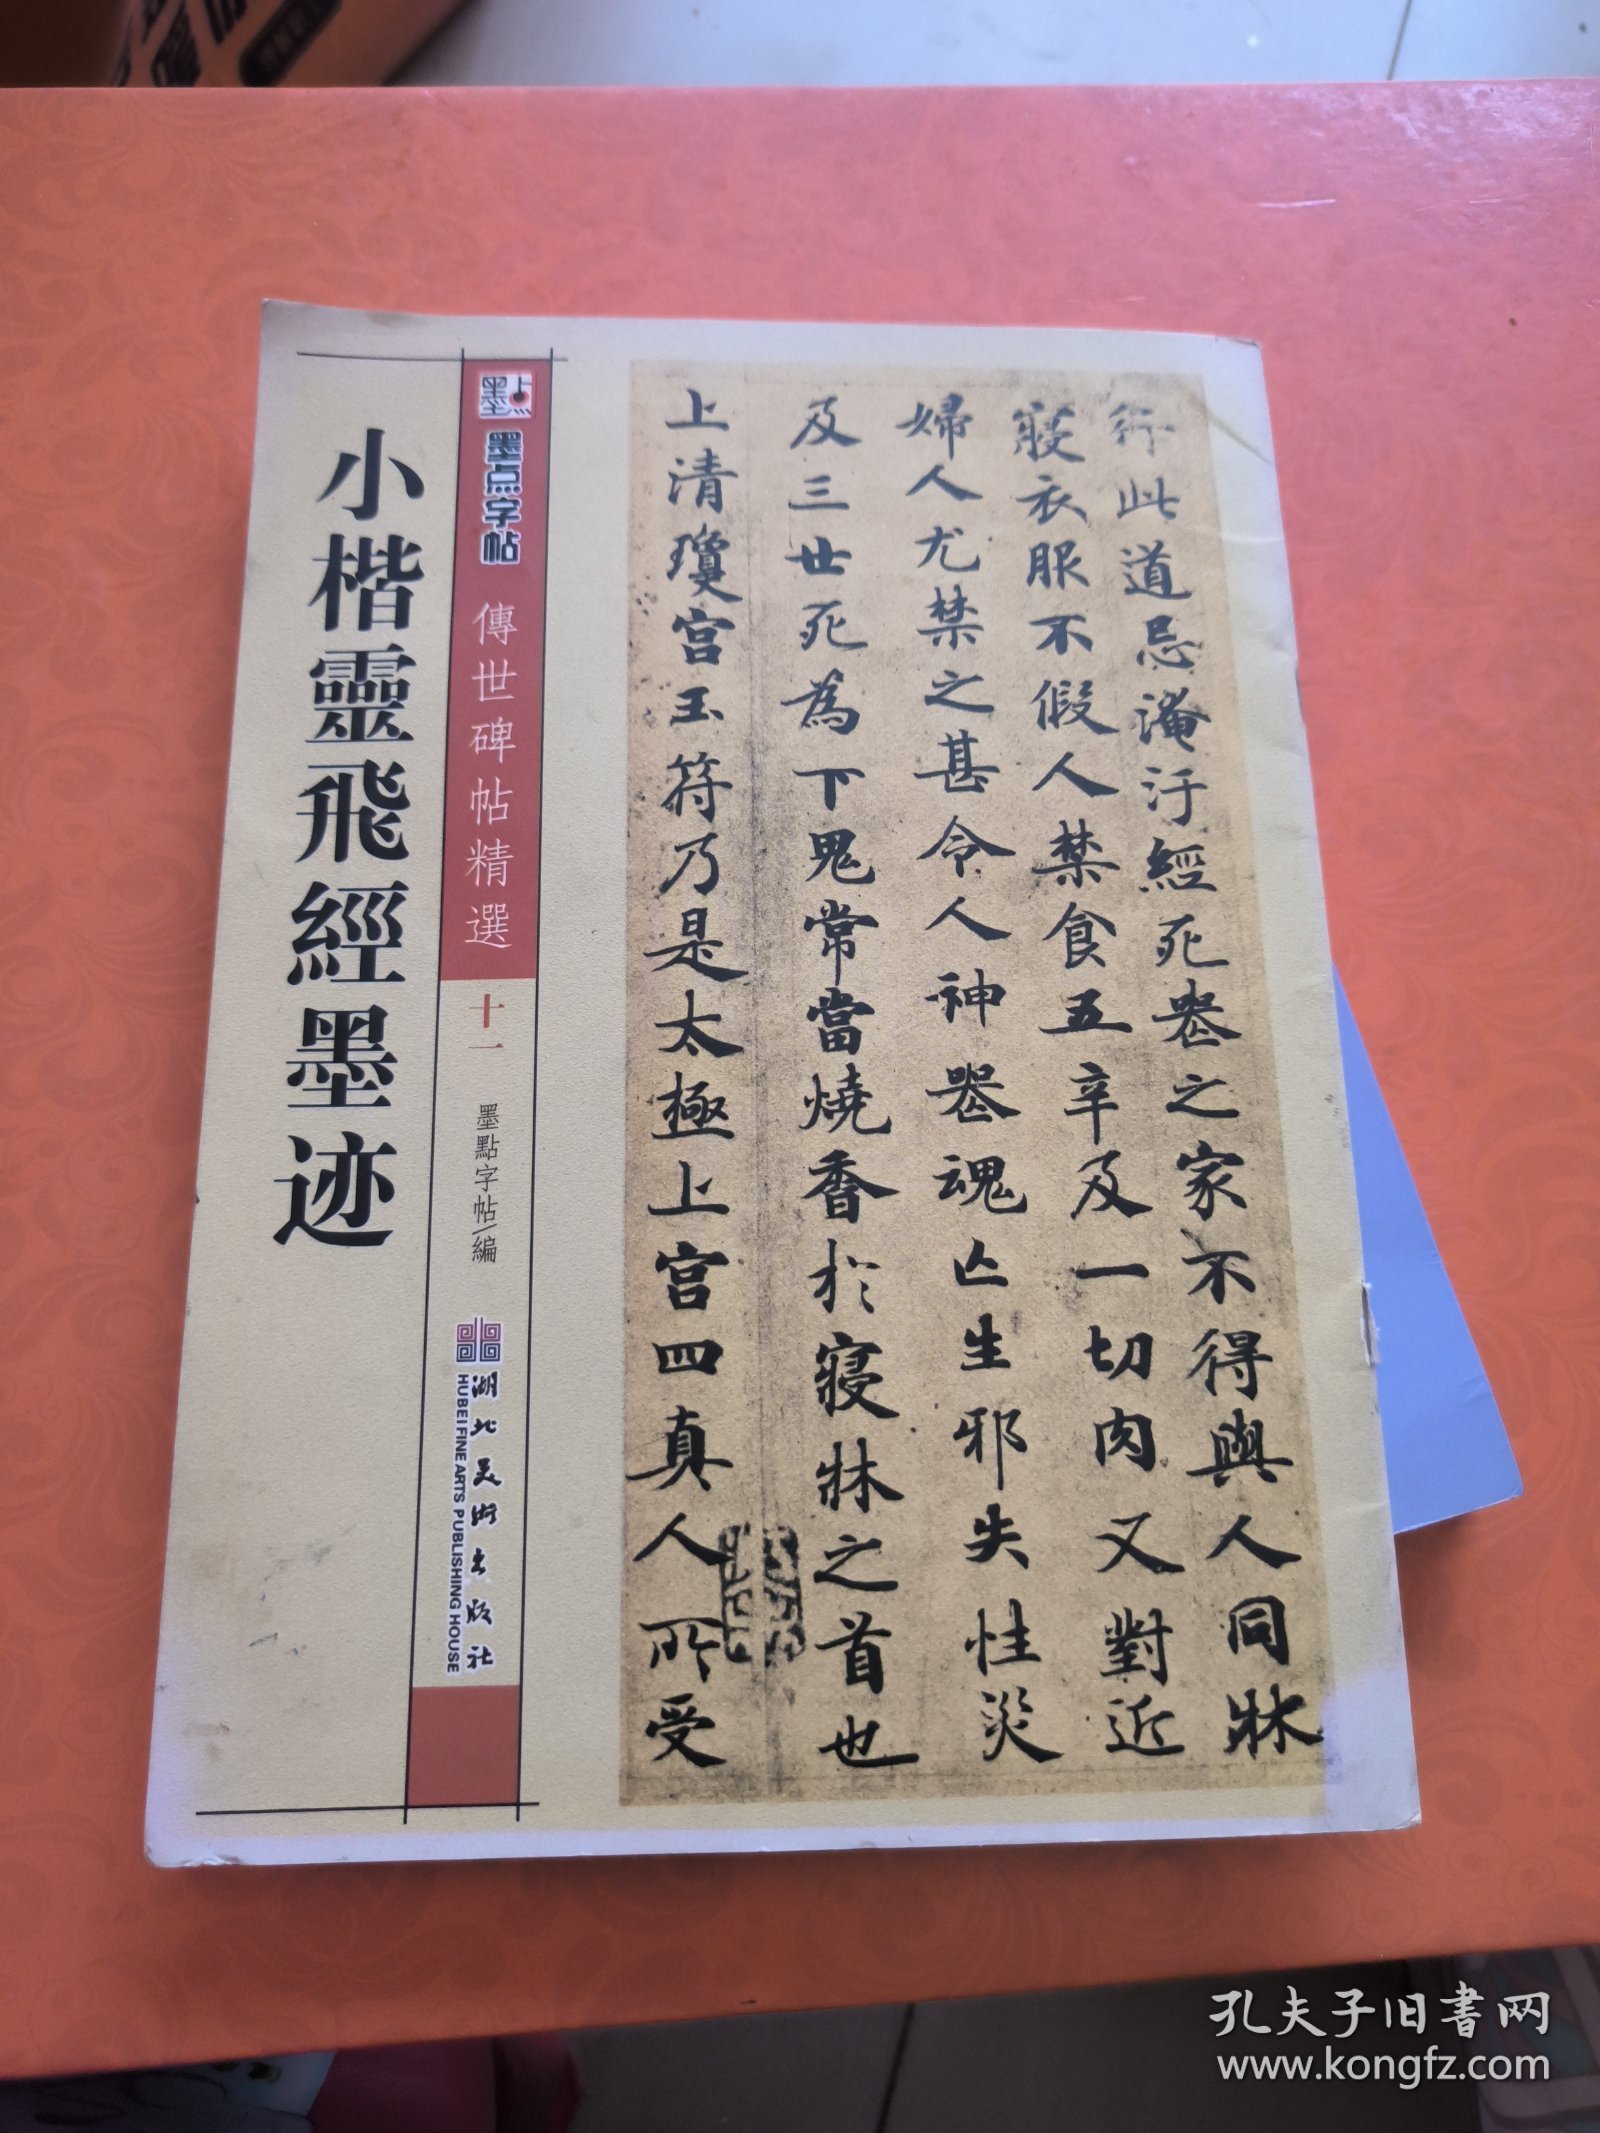 小楷靈飛經墨迹
墨點
墨点字帖
傳世碑帖精選
十一
墨點字帖/編
湖北美術出版社
HUBEI FINE ARTS PUBLISHING HOUSE
行此道忌淹汙經死喪之家不得與人同牀
寢衣服不假人禁食五辛及一切肉又對近
婦人尤禁之甚令人神喪魂亡生邪失性災
及三世死為下鬼常當燒香於寢牀之首也
上清瓊宮玉符乃是太極上宮四真人所受
孔夫子旧书网
www.kongfz.com